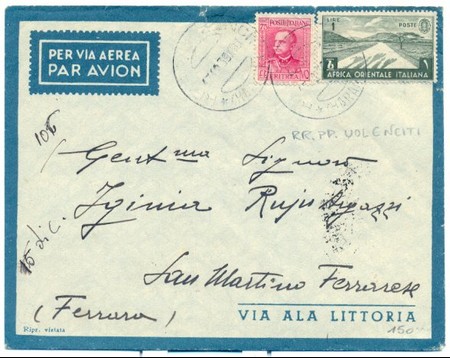 PER VIA AEREA
PAR AVION
POSTE ITALIANE
ERITREA
LIRE 1 POSTE
AFRICA ORIENTALE ITALIANA
RR.PP. VOLENCITI
Gent ma Signora
Iginia
San Martino Ferrarese
(Ferrara)
VIA ALA LITTORIA
Ripr. vietata
150
15 dic.